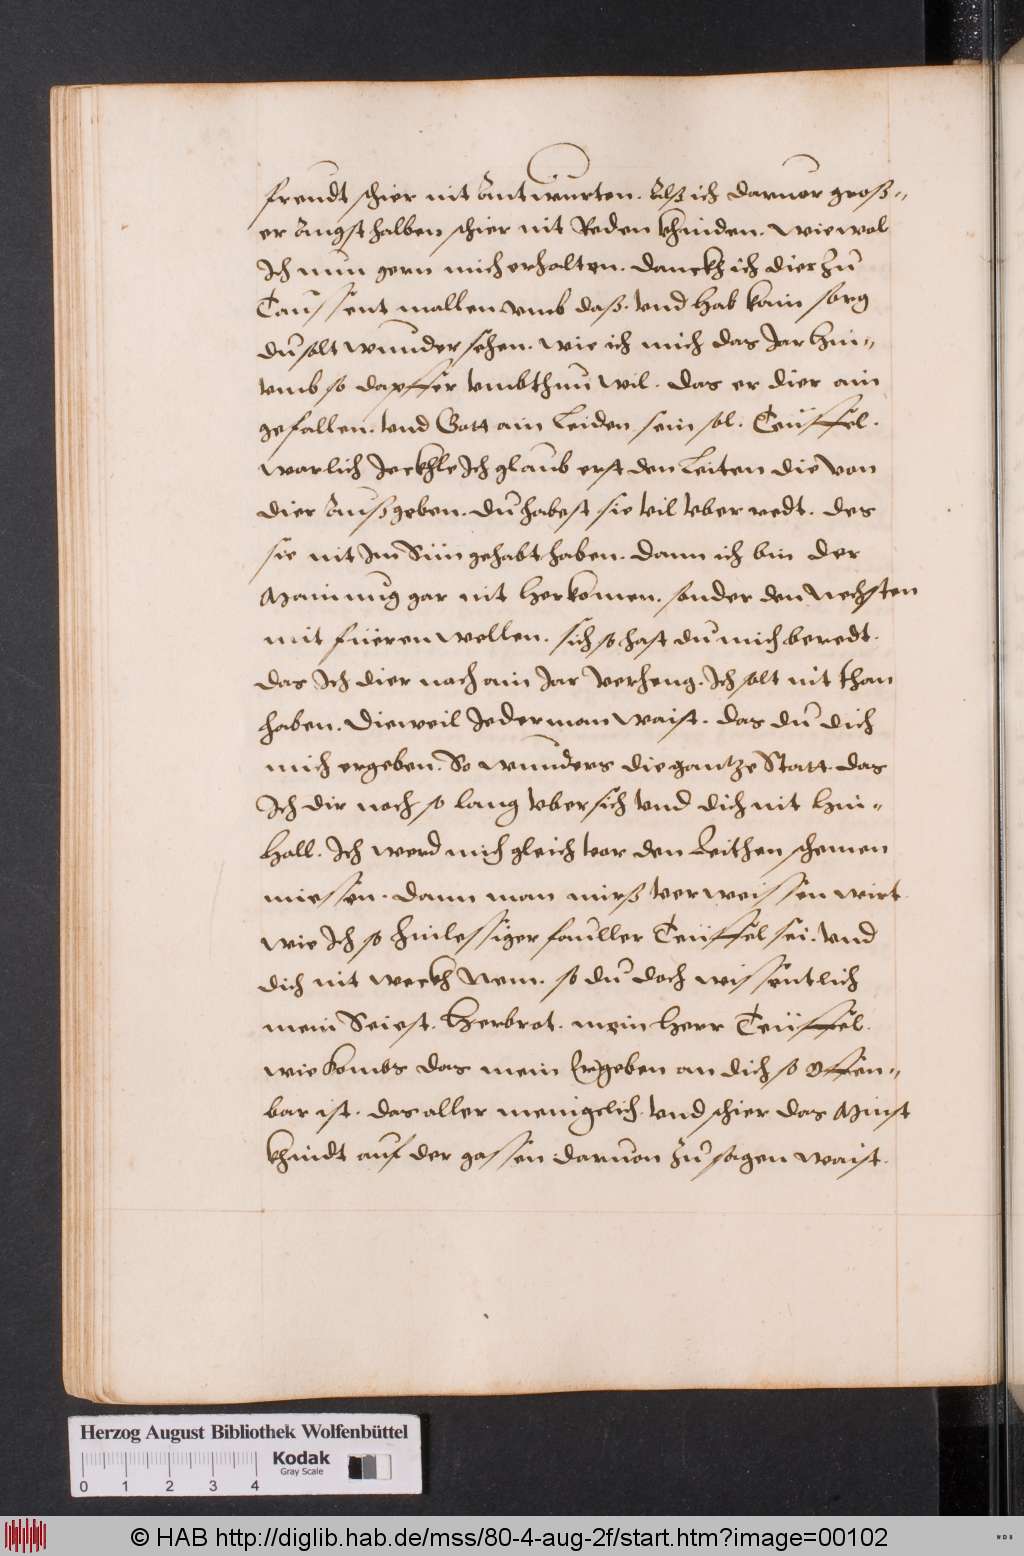 freudt schier nit Antwurten. Alß ich daruor groß-
er Angst halben schier nit Reden khinden. wiewol
Ich nun gern mich erholten. danckh ich dier Zů
Taussent mallen vmb daß. vnd hab kain sorg
du solt wunder sehen. wie ich mich das Jar hin-
vmb so dapffer vmbthun wil. das er dier ain
gefallen. vnd Gott ain Leiden sein sol. Teüffel.
warlich Jeckhle Ich glaub erst den Leiten die von
dier Außgeben. du habest sie vil vber redt. des
sie nit Im Sün gehabt haben. dann ich bin der
Mainung gar nit herkomen. sonder den Nechsten
mit füeren wellen. sich so hast du mich beredt.
das Ich dier noch ain Jar verheng. Ich solt nit than
haben. Dieweil Jederman waist. das du dich
mich ergeben. So wunders die gantze Statt das
Ich dir noch so lang vbersich vnd dich nit hin-
holl. Ich werd mich gleich vor den Leithen schemen
miessen. dann man mirß verweissen wirt
wie Ich so hinlessiger fauller Teüffel sei. vnd
dich nit weckh Nem. so du doch wissentlich
mein Seiest. Herbrot. mein herr Teüffel.
wie kombs das mein Ergeben an dich so offen-
bar ist. das aller menigclich vnd schier das Minst
khindt auf der gassen daruon Zů sagen waist.
Herzog August Bibliothek Wolfenbüttel
Kodak
Gray Scale
0 1 2 3 4
© HAB http://diglib.hab.de/mss/80-4-aug-2f/start.htm?image=00102